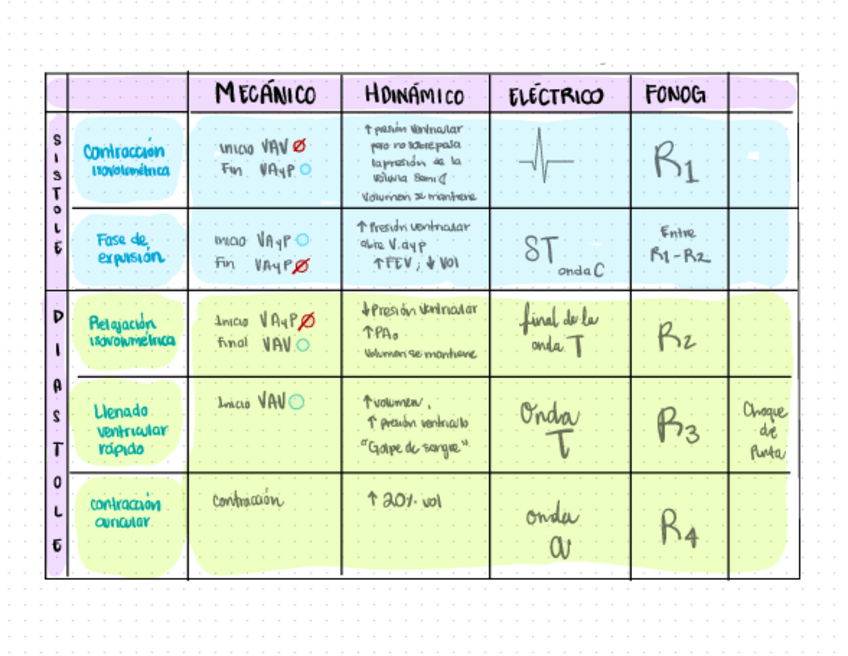 MECÁNICO
HDINÁMICO
ELÉCTRICO
FONOG
SISTOLE
Contracción
isovolumétrica
inicio VAV Ø
Fin VAyP O
↑ presión ventricular
pero no sobrepasa
la presión de la
Volumen se mantiene
R1
Fase de
expulsión
inicio VAyP O
Fin VAyP Ø
↑ Presión ventricular
abre V. ayp
↑ FEV, ↓ Vol
ST
onda C
Entre
R1-R2
DIASTOLE
Relajación
isovolumétrica
Inicio VAyP Ø
final VAV O
↓ Presión ventricular
↑ PAo
Volumen se mantiene
final de la
onda T
R2
Llenado
ventricular
rápido
Inicio VAV O
↑ volumen,
↑ presión ventriculo
"Golpe de sangre"
Onda
T
R3
Choque
de
Punta
contracción
auricular
Contracción
↑ 20% vol
onda
a
R4